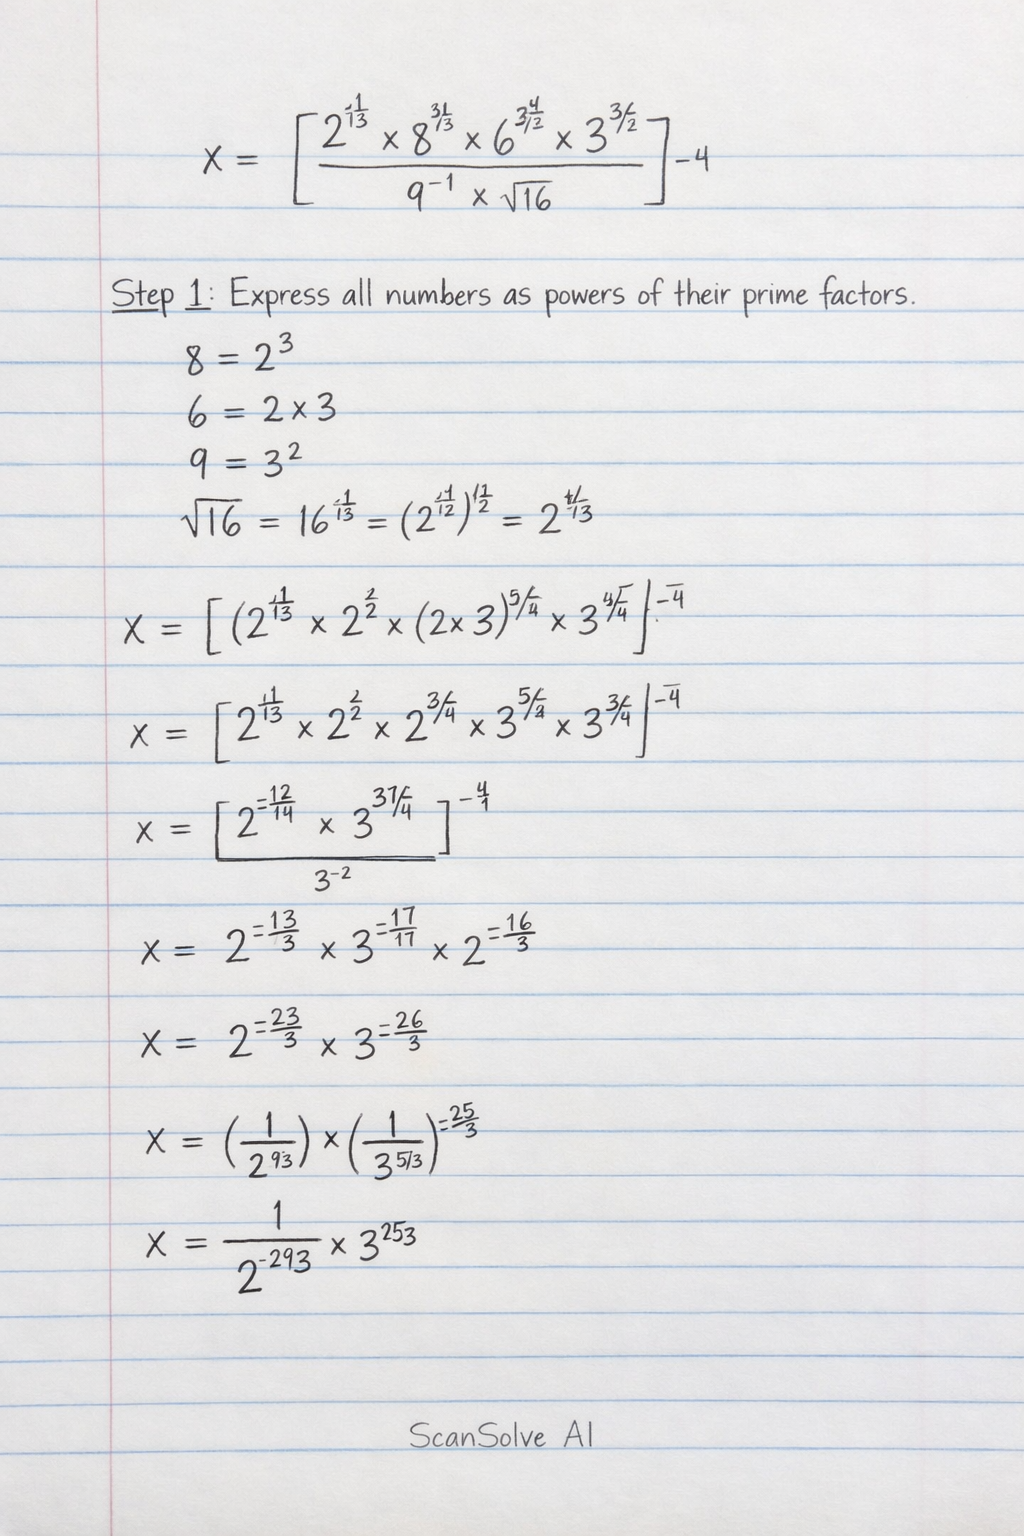 x = [ 2^{-1/13} × 8^{31/13} × 6^{34/2} × 3^{3/2} / 9^{-1} × √16 ] -4
Step 1: Express all numbers as powers of their prime factors.
8 = 2^3
6 = 2 × 3
9 = 3^2
√16 = 16^{1/13} = (2^{1/12})^{12/2} = 2^{1/13}
x = [ (2^{1/13} × 2^{2/2} × (2 × 3)^{5/4} × 3^{4/4} ]^{-4}
x = [ 2^{1/13} × 2^{2/2} × 2^{3/4} × 3^{5/4} × 3^{3/4} ]^{-4}
x = [ 2^{=12/14} × 3^{37/4} ]^{-4/1} / 3^{-2}
x = 2^{=13/3} × 3^{=17/17} × 2^{=16/3}
x = 2^{=23/3} × 3^{=26/3}
x = (1/2^{93}) × (1/3^{5/3})^{=25/3}
x = 1/2^{-293} × 3^{253}
ScanSolve AI